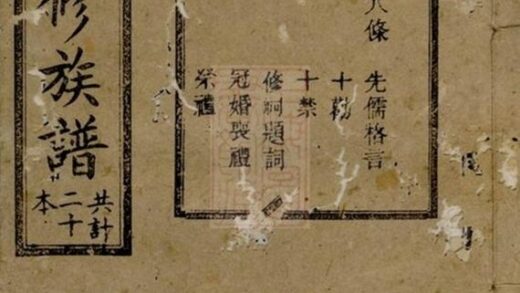 八條 先儒格言
十勸
十禁
修祠題詞
冠婚喪禮
祭禮
修族譜
共計
二十
本